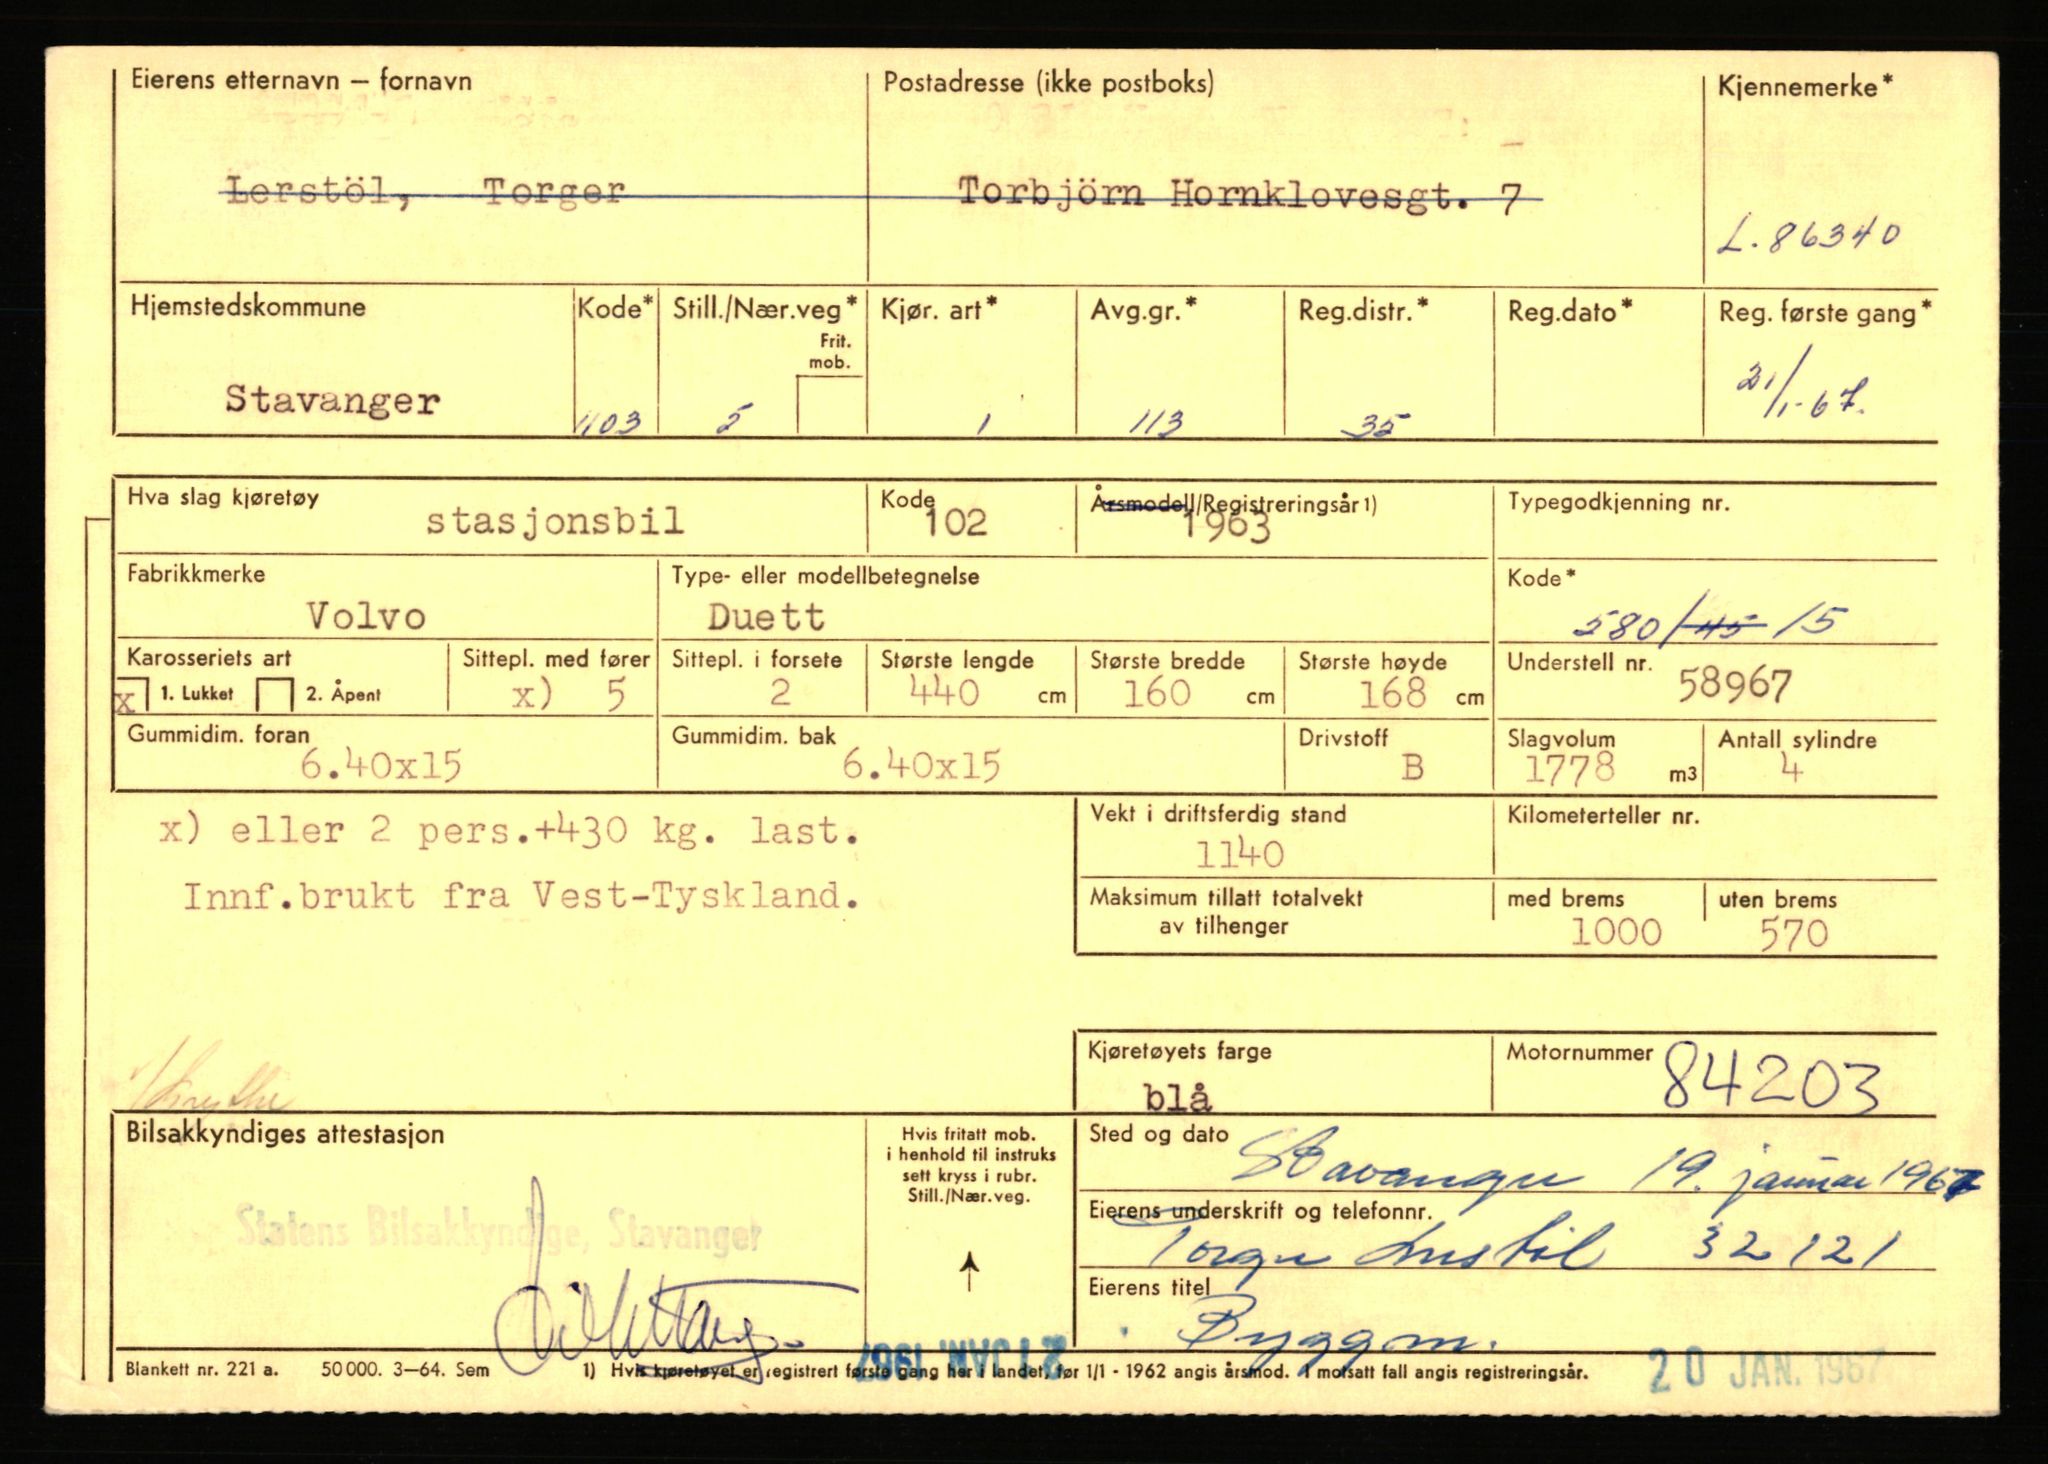 Eierens etternavn – fornavn Postadresse (ikke postboks) Kjennemerke*
Lerstöl, Torger Torbjörn Hornklovesgt. 7
L. 86340
Hjemstedskommune Kode* Still./Nær.veg* Kjør. art* Avg.gr.* Reg.distr.* Reg.dato* Reg. første gang*
Frit.
mob.
Stavanger 1103 5 1 113 35 21/1-67.
Hva slag kjøretøy Kode Årsmodell/Registreringsår 1) Typegodkjenning nr.
stasjonsbil 102 1963
Fabrikkmerke Type- eller modellbetegnelse Kode*
Volvo Duett 580/45 15
Karosseriets art Sittepl. med fører Sittepl. i forsete Største lengde Største bredde Største høyde Understell nr.
x 1. Lukket 2. Åpent x) 5 2 440 cm 160 cm 168 cm 58967
Gummidim. foran Gummidim. bak Drivstoff Slagvolum Antall sylindre
6.40x15 6.40x15 B 1778 m3 4
x) eller 2 pers.+430 kg. last.
Innf.brukt fra Vest-Tyskland.
Vekt i driftsferdig stand Kilometerteller nr.
1140
Maksimum tillatt totalvekt med brems uten brems
av tilhenger 1000 570
Kjøretøyets farge Motornummer
blå 84203
Bilsakkyndiges attestasjon
Statens Bilsakkyndige, Stavanger
Hvis fritatt mob.
i henhold til instruks
sett kryss i rubr.
Still./Nær.veg.
Sted og dato
Stavanger 19. januar 1967
Eierens underskrift og telefonnr.
Torger Lerstöl 32121
Eierens titel
Byggm.
21 JAN. 1967
Blankett nr. 221 a. 50 000. 3–64. Sem 1) Hvis kjøretøyet er registrert første gang her i landet, før 1/1 - 1962 angis årsmod. I motsatt fall angis registreringsår.
20 JAN. 1967